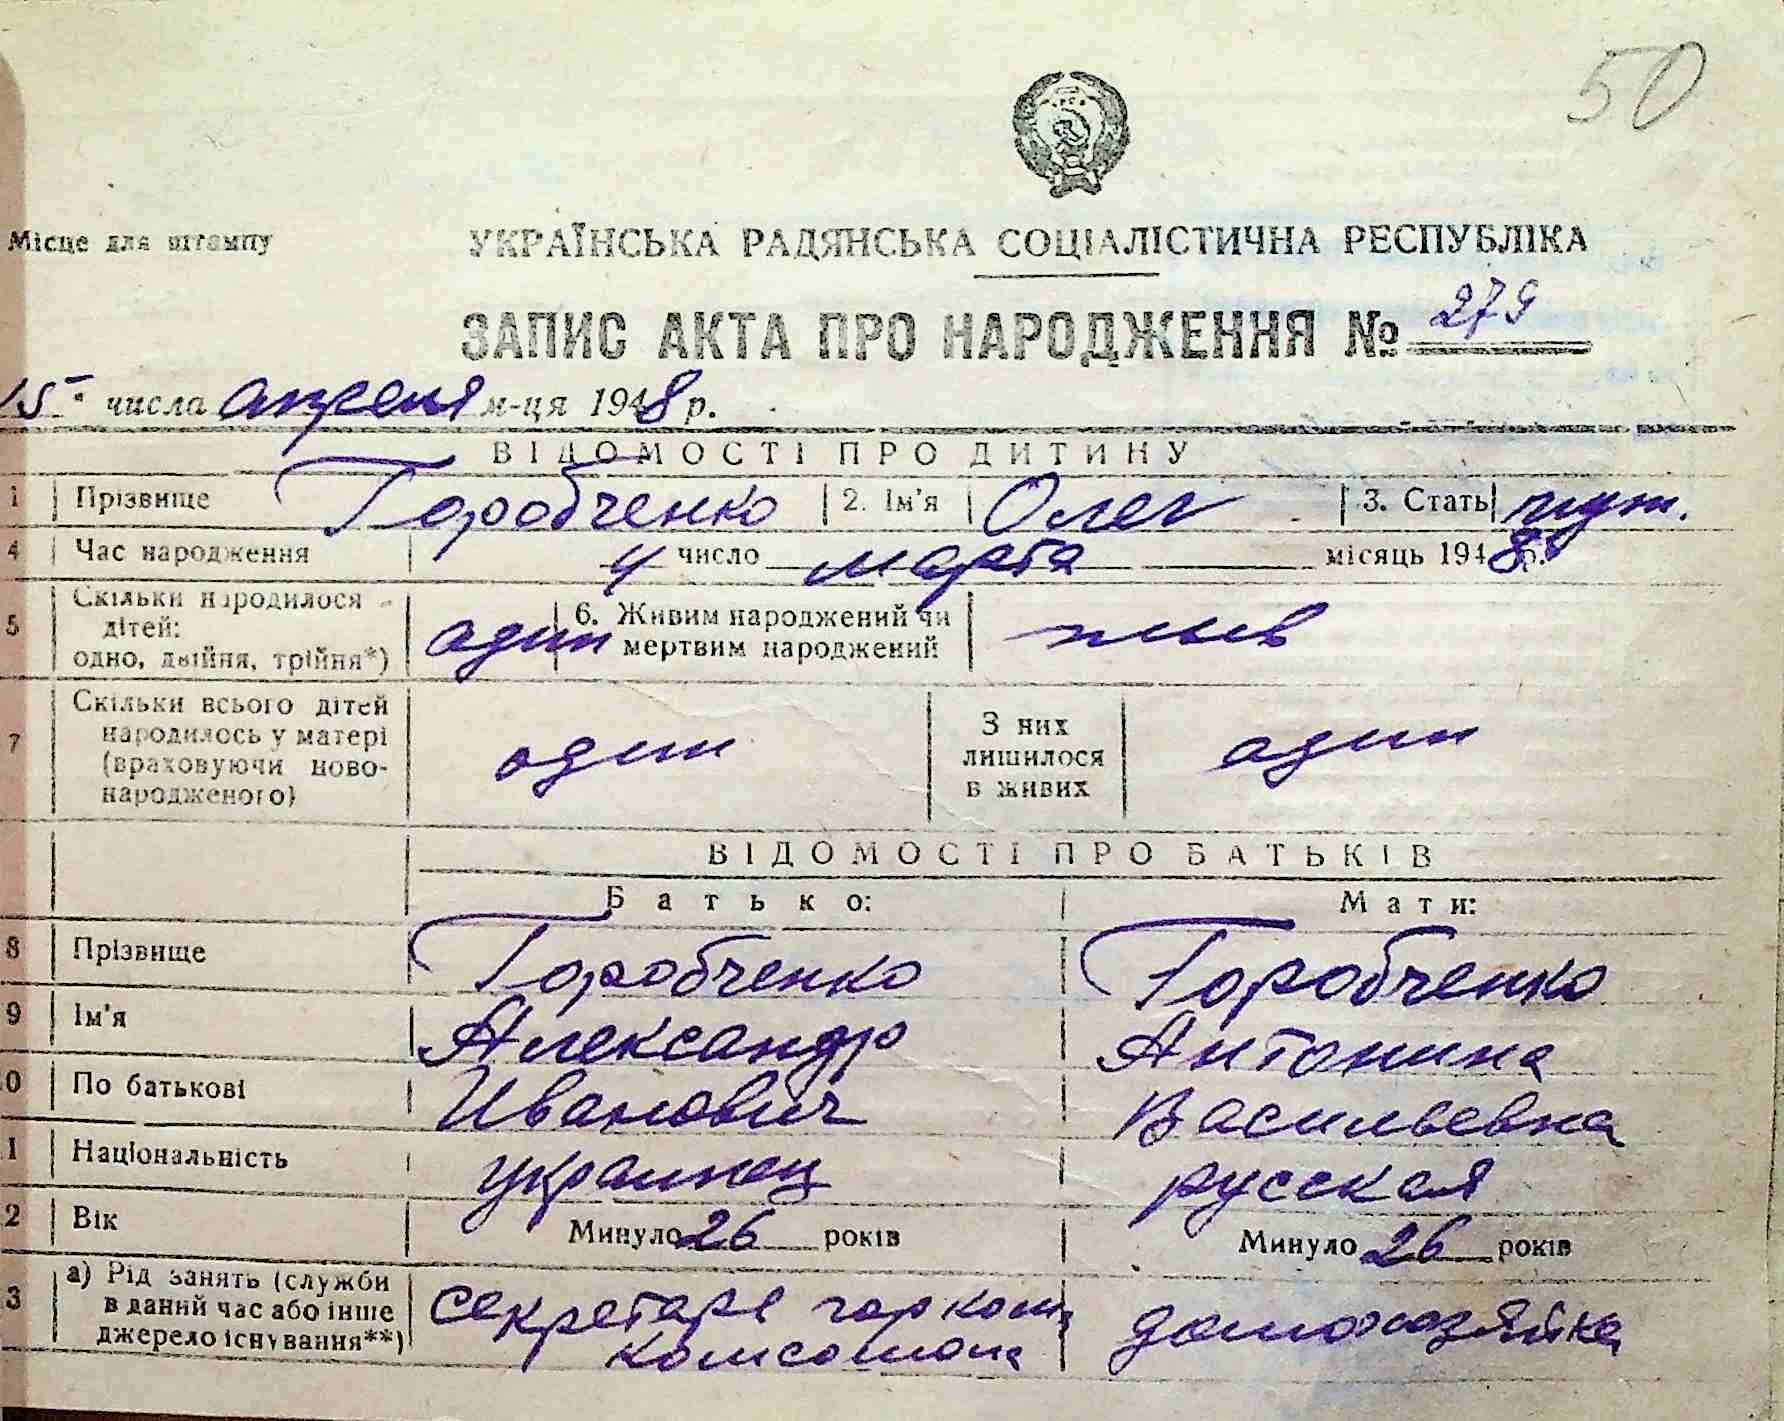 50
Місце для штампу
УКРАЇНСЬКА РАДЯНСЬКА СОЦІАЛІСТИЧНА РЕСПУБЛІКА
ЗАПИС АКТА ПРО НАРОДЖЕННЯ № 279
15 числа апреля м-ця 1948 р.
ВІДОМОСТІ ПРО ДИТИНУ
1 Прізвище Горобченко 2. Ім'я Олег 3. Стать муж.
4 Час народження 4 число марта місяць 1948 р.
5 Скільки народилося дітей: одно, двійня, трійня*) один 6. Живим народжений чи мертвим народжений
7 Скільки всього дітей народилось у матері (враховуючи новонародженого) один З них лишилося в живих один
ВІДОМОСТІ ПРО БАТЬКІВ
Батько: Мати:
8 Прізвище Горобченко Горобченко
9 Ім'я Александр Антонина
0 По батькові Иванович Васильевна
1 Національність украинец русская
2 Вік Минуло 26 років Минуло 26 років
3 а) Рід занять (служби в даний час або інше джерело існування**) секретарь горком комсомола домохозяйка